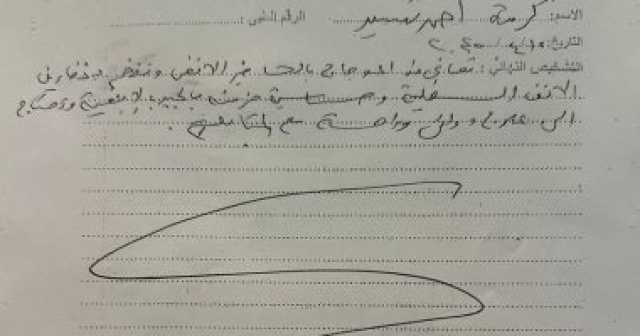 الاسم: كريمة احمد سعيد الرقم الطبي:
التاريخ:
التشخيص النهائي: تعاني من اعوجاج بالحاجز الانفي وتضخم بغضاريف
الانف السفلية وحساسية مزمنة بالجيوب الانفية وتحتاج
الى علاج دوائي وراحة مع المتابعة